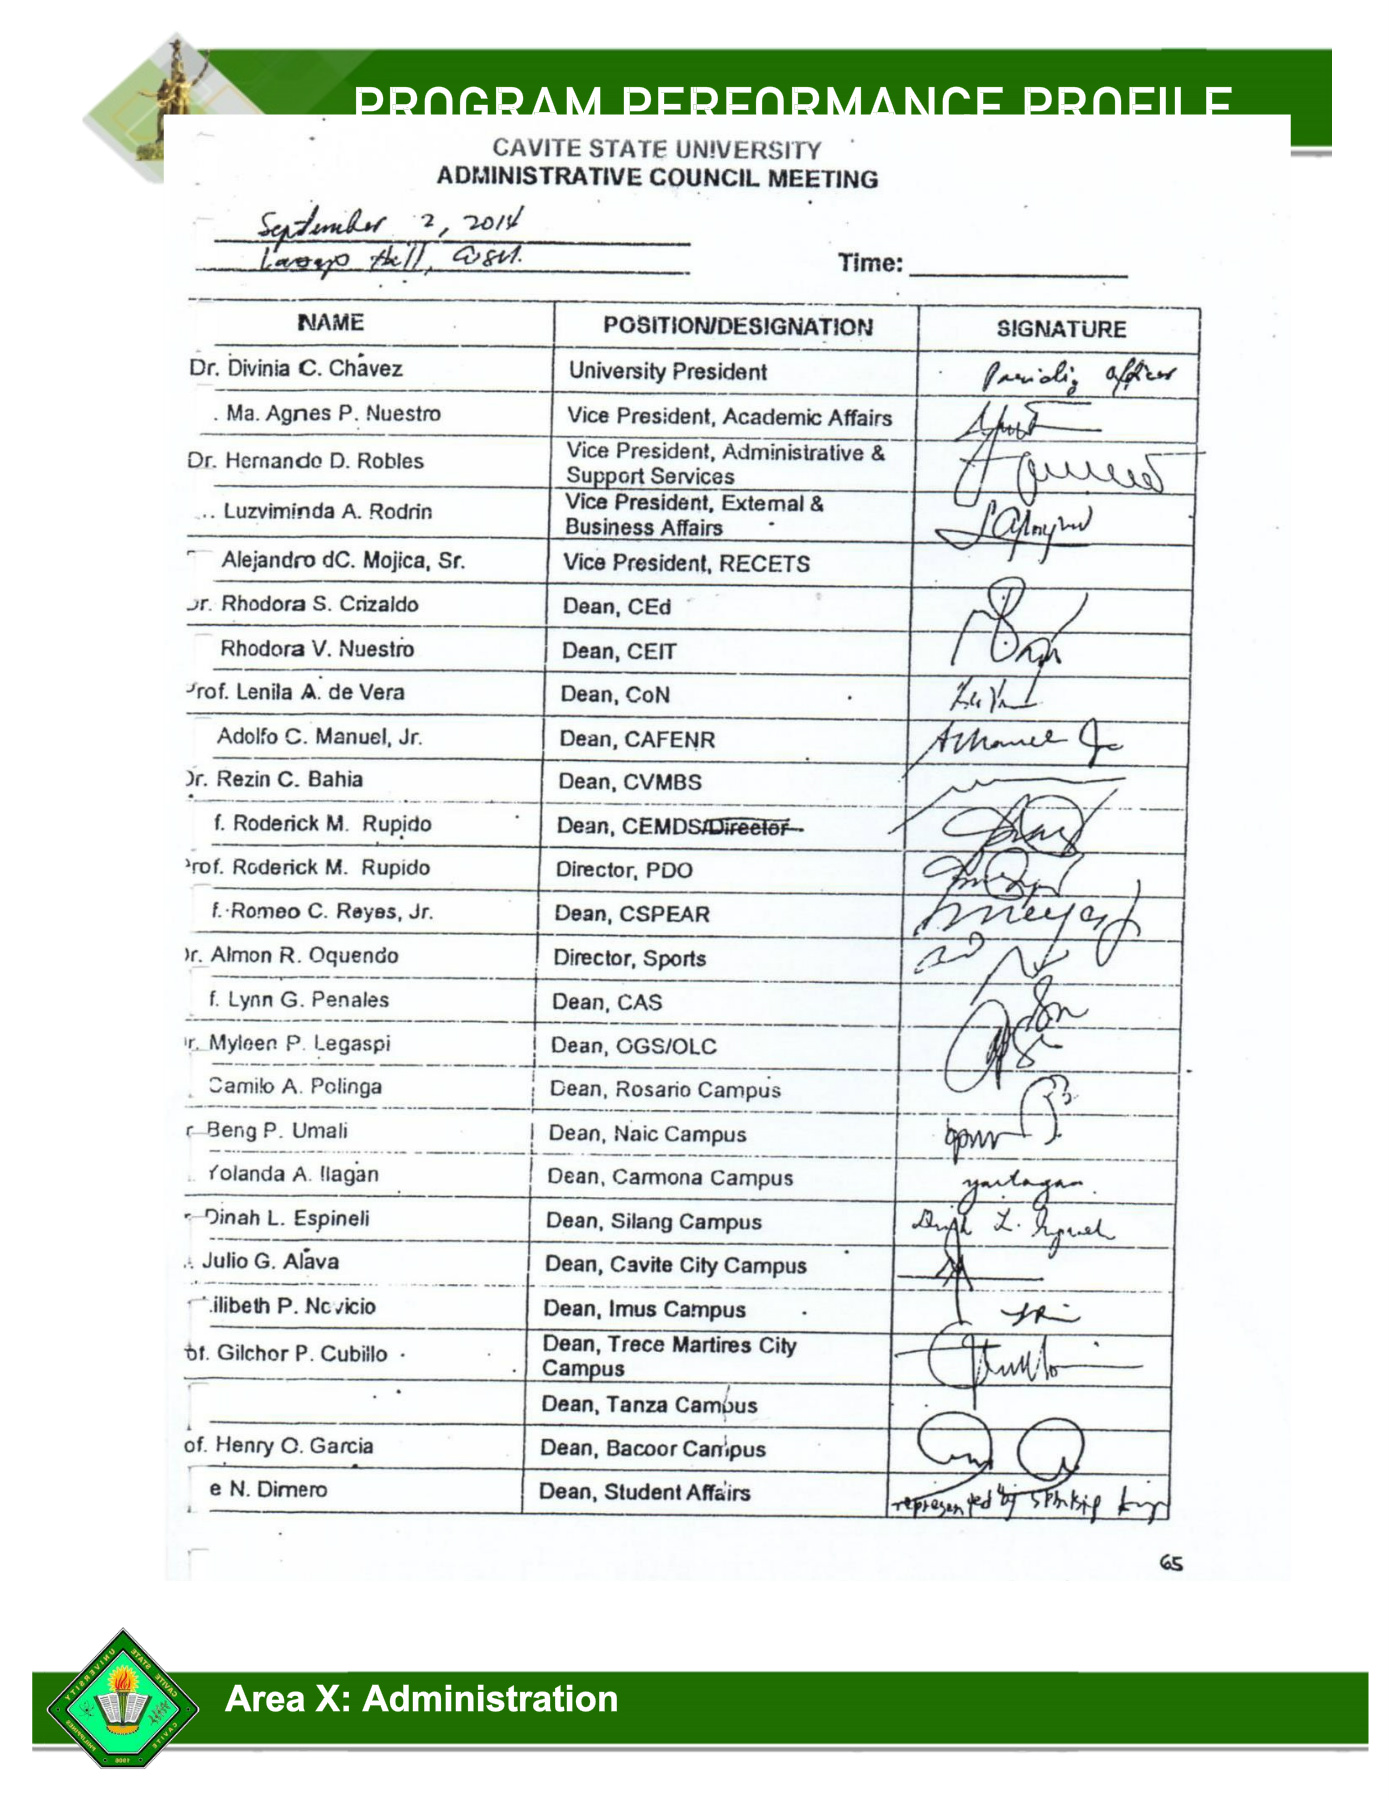 PROGRAM PERFORMANCE PROFILE
CAVITE STATE UNIVERSITY
ADMINISTRATIVE COUNCIL MEETING
September 2, 2014
Hall, CvSU.
Time:
NAME POSITION/DESIGNATION SIGNATURE
Dr. Divinia C. Chavez University President Presiding officer
. Ma. Agnes P. Nuestro Vice President, Academic Affairs
Dr. Hernando D. Robles Vice President, Administrative &
Support Services
Luzviminda A. Rodrin Vice President, External &
Business Affairs
Alejandro dC. Mojica, Sr. Vice President, RECETS
Dr. Rhodora S. Crizaldo Dean, CEd
Rhodora V. Nuestro Dean, CEIT
Prof. Lenila A. de Vera Dean, CoN
Adolfo C. Manuel, Jr. Dean, CAFENR
Dr. Rezin C. Bahia Dean, CVMBS
f. Roderick M. Rupido Dean, CEMDS/Director
Prof. Roderick M. Rupido Director, PDO
f. Romeo C. Reyes, Jr. Dean, CSPEAR
Dr. Almon R. Oquendo Director, Sports
f. Lynn G. Penales Dean, CAS
r. Myleen P. Legaspi Dean, OGS/OLC
Camilo A. Polinga Dean, Rosario Campus
r Beng P. Umali Dean, Naic Campus
Yolanda A. Ilagan Dean, Carmona Campus
Dinah L. Espineli Dean, Silang Campus
Julio G. Alava Dean, Cavite City Campus
ilibeth P. Novicio Dean, Imus Campus
of. Gilchor P. Cubillo Dean, Trece Martires City
Campus
Dean, Tanza Campus
of. Henry O. Garcia Dean, Bacoor Campus
e N. Dimero Dean, Student Affairs represented by
65
Area X: Administration